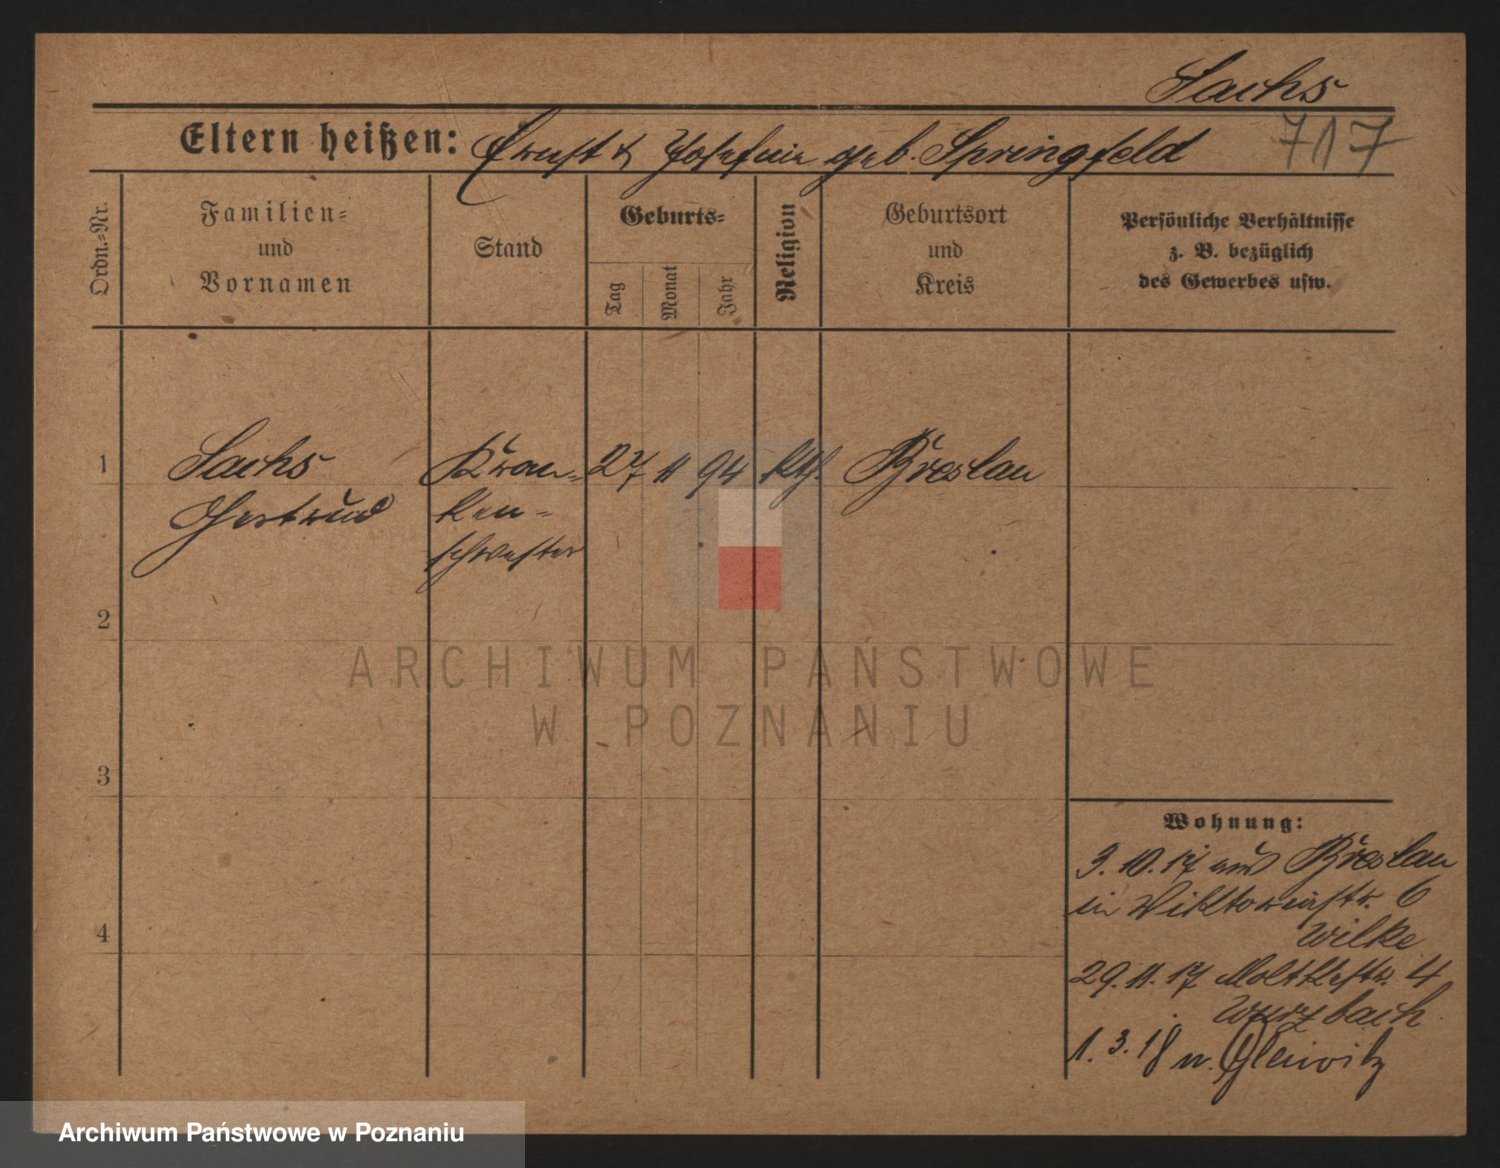 Sachs
Eltern heißen: Ernst & Josefine geb. Springfeld 717
Ordn.=Nr.
Familien=
und
Vornamen
Stand
Geburts=
Tag
Monat
Jahr
Religion
Geburtsort
und
Kreis
Persönliche Verhältnisse
z. B. bezüglich
des Gewerbes usw.
1 Sachs Kran= 27 11 94 kth. Breslau
Gertrud ken=
schwester
2
3
4
Wohnung:
3.10.17 aus Breslau
in Viktoriastr. 6
Wilke
29.11.17 Moltkestr. 4
Wurzbach
1.3.18 n. Gleiwitz
ARCHIWUM PAŃSTWOWE
W POZNANIU
Archiwum Państwowe w Poznaniu